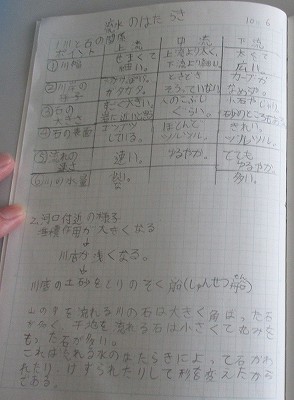 流水のはたらき 10.6
1.川と石の関係
上流 中流 下流
① 川幅 せまくて 細い。 上流より太く、下流より細い。 太くて 広い。
② ときどき カーブが
ガタガタ。 そうっていない なめらか。
③ 石の大きさ すごく大きい。 人のこぶし くらい。 小石や
④ 石の表面 ゴツゴツ している。 ほとんど ツルツル。 きれい。 ツルツル。
⑤ 流れの速さ 速い。 ゆるやか。 とても ゆるやか。
⑥ 川の水量 少ない 多い。
2.河口付近の様子
堆積作用が大きくなる
↓
川底が浅くなる。
↓
川底の土砂をとりのぞく船(しゅんせつ船)
山の中を流れる川の石は大きく角ばった石
が多く、平地を流れる石は小さくて丸みを
もった石が多い。
これは流れる水のはたらきによって石がわ
れたり、けずられたりして形を変えたから
である。